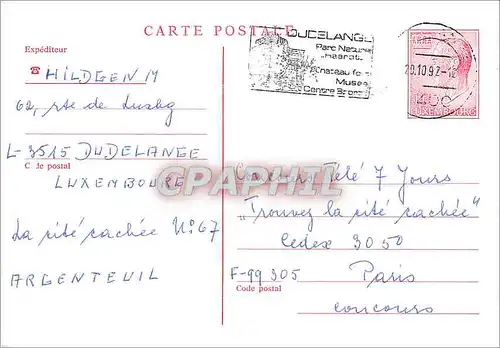 CARTE POSTALE
DUDELANGE
Parc Naturel
Haardt
Château fort
Musée
Centre
29.10.92-12
LUXEMBOURG
Expéditeur
HILDGEN M
62, rte de Luxbg
L-3515 DUDELANGE
C Je postal
LUXEMBOURG
La cité cachée N°67
ARGENTEUIL
CPAPHIL
Concours Télé 7 Jours
"Trouvez la cité cachée"
Cedex 3050
F-99305 Paris
Code postal
concours